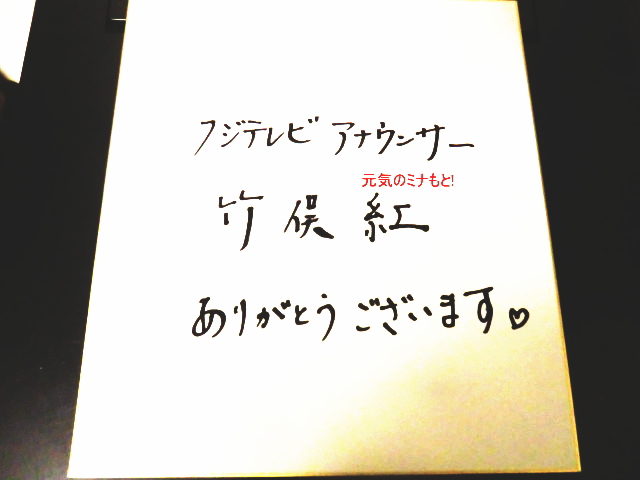 フジテレビ アナウンサー
元気のミナもと!
竹俣 紅
ありがとうございます♡